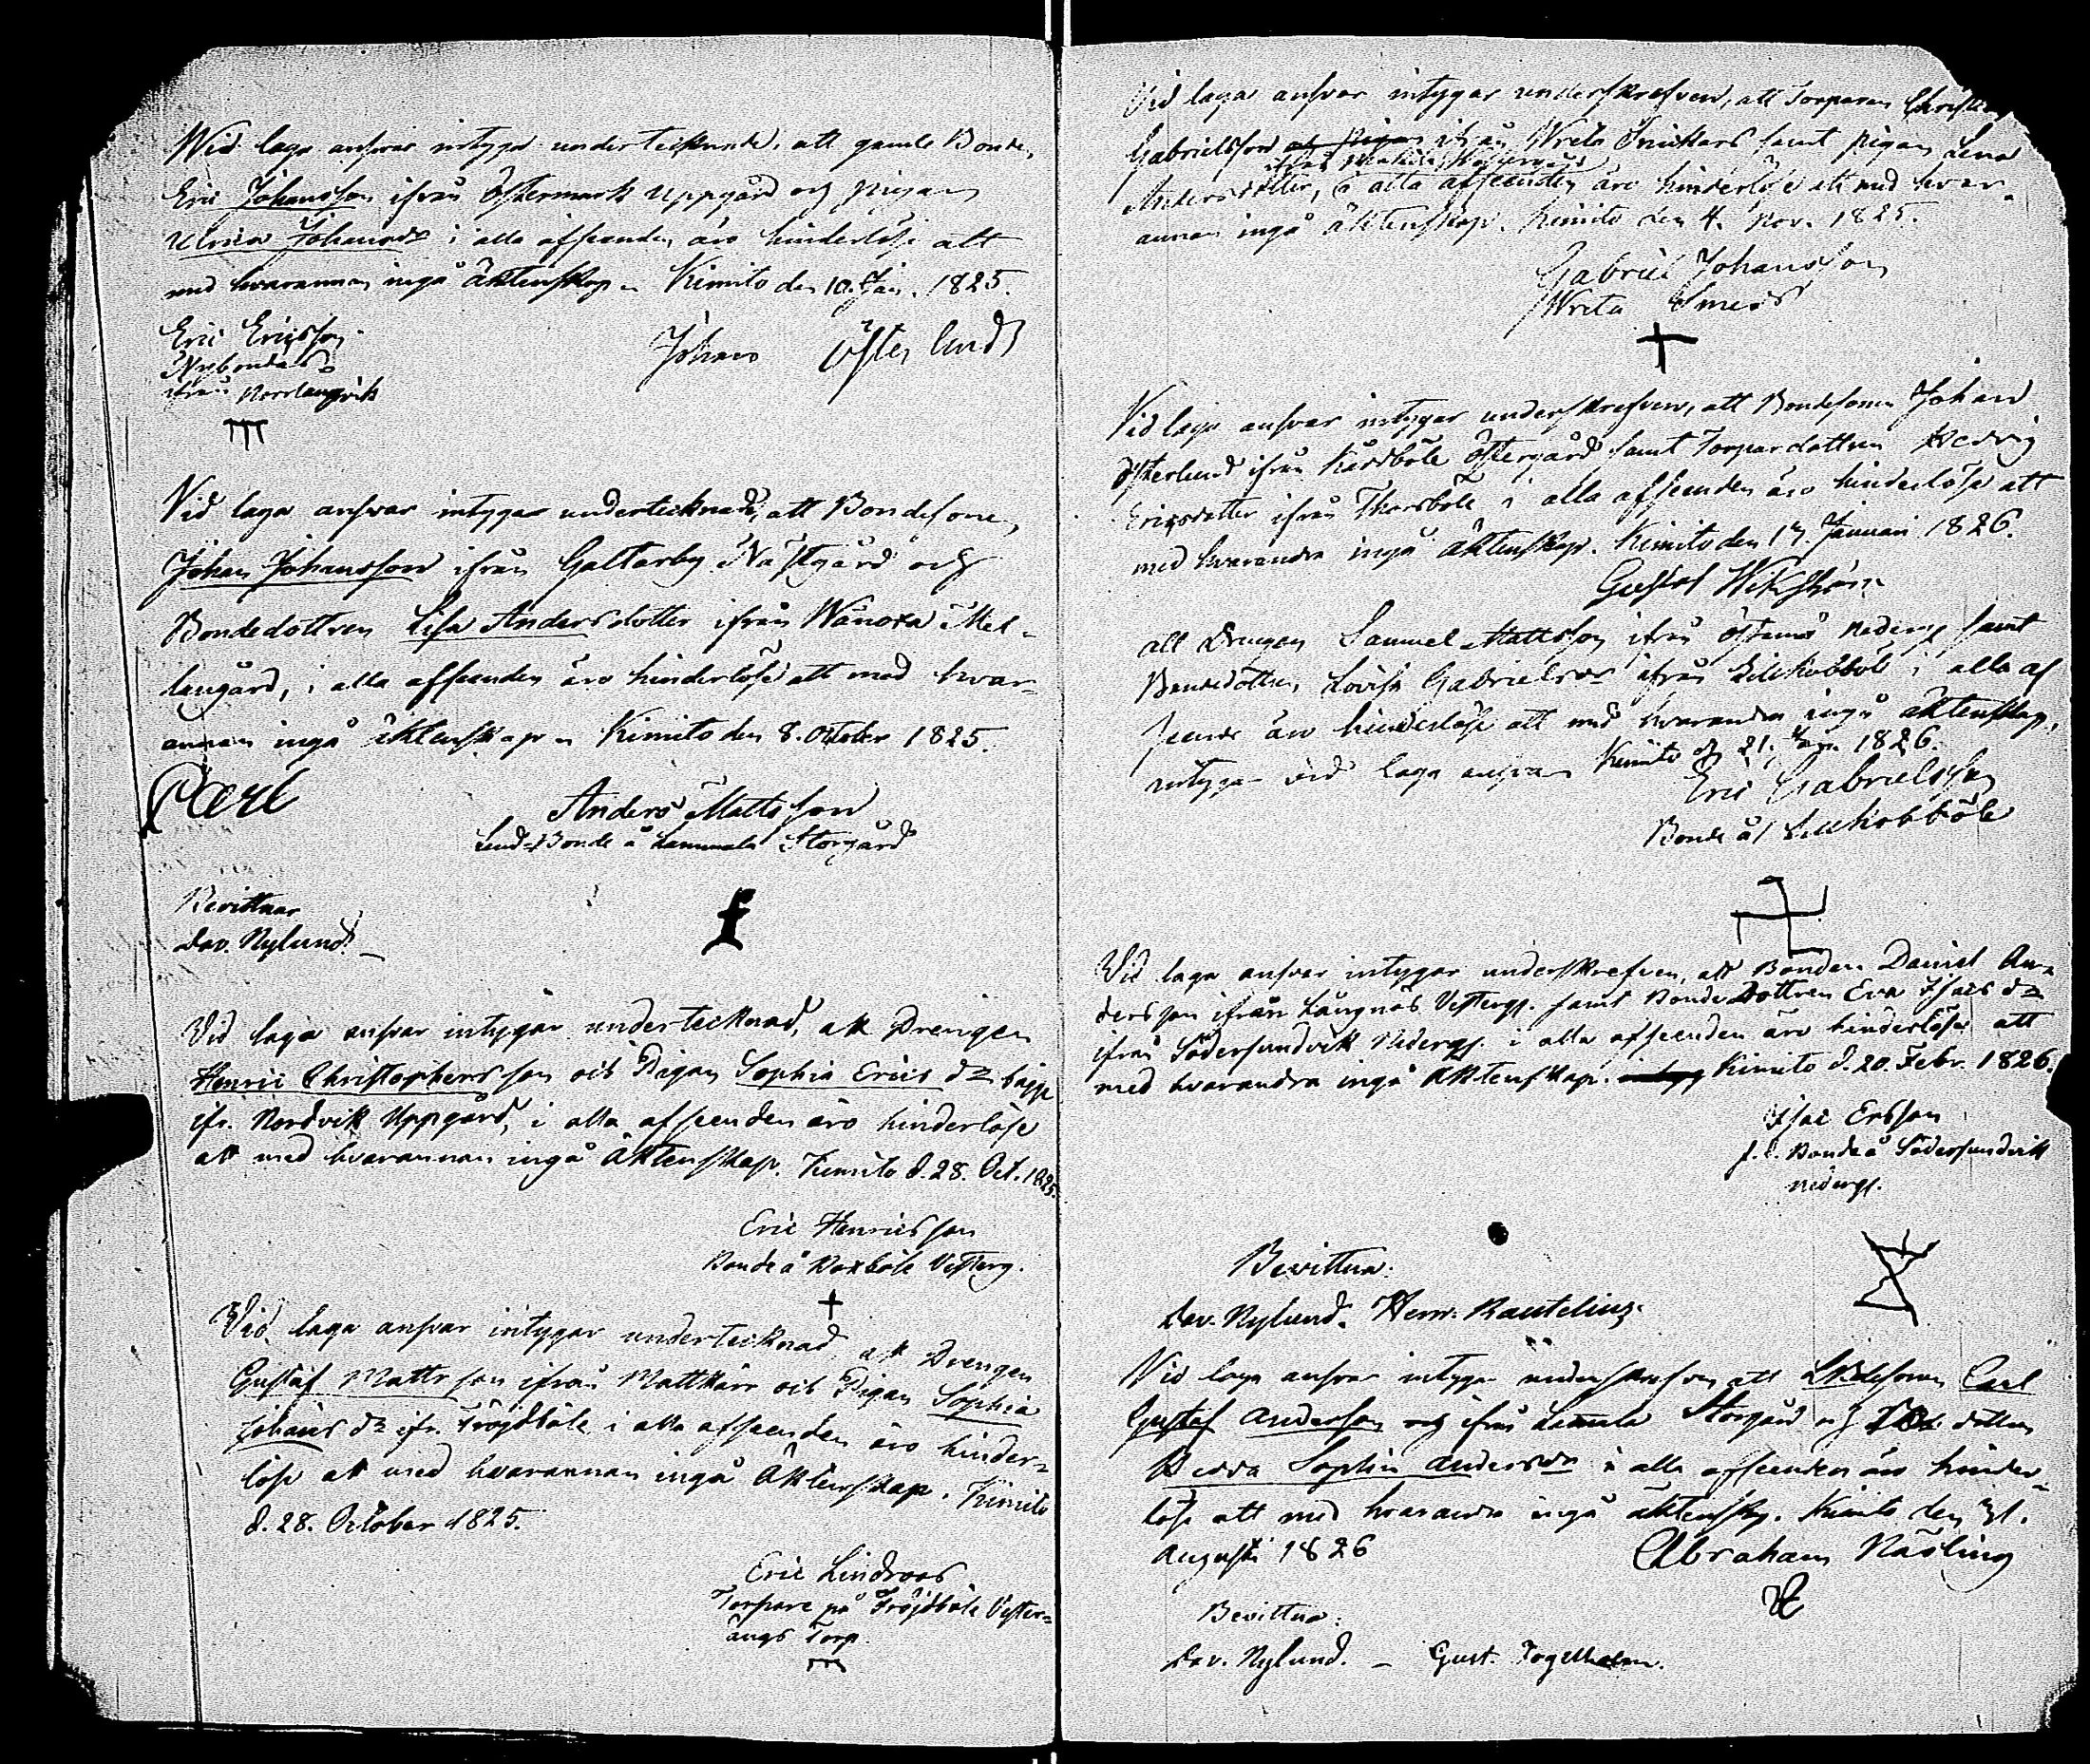 Wid laga ansvar intygar undertecknade, att gamle Bonden
Eric Johansson ifrån Östermark Uppgård och pigan
Ulrica Johansdr i alla afseenden äro hinderlöse att
med hvarannan ingå äktenskap. Kimito den 10. Jan. 1825.
Eric Ericsson
Nybondas
ifrån Norrlangvik
Johan Österlund
Vid laga ansvar intygar undertecknad, att Bondesonen
Johan Johansson ifrån Galtarby Nästgård och
Bondedottren Lisa Andersdotter ifrån Wänoxa Mel-
langård, i alla afseenden äro hinderlöse att med hvar-
annan ingå äktenskap. Kimito den 8. October 1825.
Anders Mattsson
Bonde å Lammala Storgård
Bevittnar
Dav. Nylund.
Vid laga ansvar intygar undertecknad, att Drengen
Henric Christophersson och Pigan Sophia Erics dr bägge
ifr. Nordvik Uppgård, i alla afseenden äro hinderlöse
att med hvarannan ingå Äktenskap. Kimito d. 28. Oct. 1825.
Eric Henricsson
Bonde å Roxböle Vesterg.
Vid laga ansvar intygar undertecknad, att Drengen
Gustaf Mattsson ifrån Mattkärr och Pigan Sophia
Johans dr ifr. Fröjdböle i alla afseenden äro hinder-
löse att med hvarannan ingå Äktenskap. Kimito
d. 28. October 1825.
Eric Lindroos
Torpare på Fröjdböle Vester-
ängs Torp.
Vid laga ansvar intygar underskrefven, att Torparen
Gabrielsson och Pigan ifrån Wreta Snickars samt pigan Lena
Andersdotter, i alla afseenden äro hinderlöse att med hvar-
annan ingå äktenskap. Kimito den 4. Nov. 1825.
Gabriel Johansson
Wreta Smeds
Vid laga ansvar intygar underskrefven, att Bondesonen Johan
Österlund ifrån Kårsböle Östergård samt Torpardottren Hedvig
Ericsdotter ifrån Thorsböle i alla afseenden äro hinderlöse att
med hvarandra ingå äktenskap. Kimito den 17. Januari 1826.
Gustaf Wikström
att Drengen Samuel Mattsson ifrån Östanå Nederg. samt
Bondedottren Lovisa Gabrielsdr ifrån Lillkobböle i alla af
seende äro hinderlöse att med hvarandra ingå äktenskap,
intygar vid laga ansvar Kimito d. 21. Jan. 1826.
Eric Gabrielsson
Bonde å Lillkobböle
Vid laga ansvar intygar underskrefven, att Bonden Daniel An-
dersson ifrån Långnäs Vestergs. samt Bonde Dottren Eva Isacs dr
ifrån Södersundvik Nedergs. i alla afseenden äro hinderlöse att
med hvarandra ingå Äktenskap. Kimito d. 20. Febr. 1826.
Isac Ersson
f. d. Bonde å Södersundvik
nedergs.
Bevittna:
Dav. Nylund. Henr. Rautelius.
Vid laga ansvar intygar underskrefven att Carl
Gustaf Andersson och ifrån Lammala Storgård och dottren
Hedda Sophia Andersdr i alla afseenden äro hinder-
löse att med hvarandra ingå äktenskap. Kimito den 31.
Augusti 1826
Abraham Näsling
Bevittna:
Dav. Nylund. – Gust. Fogelholm.